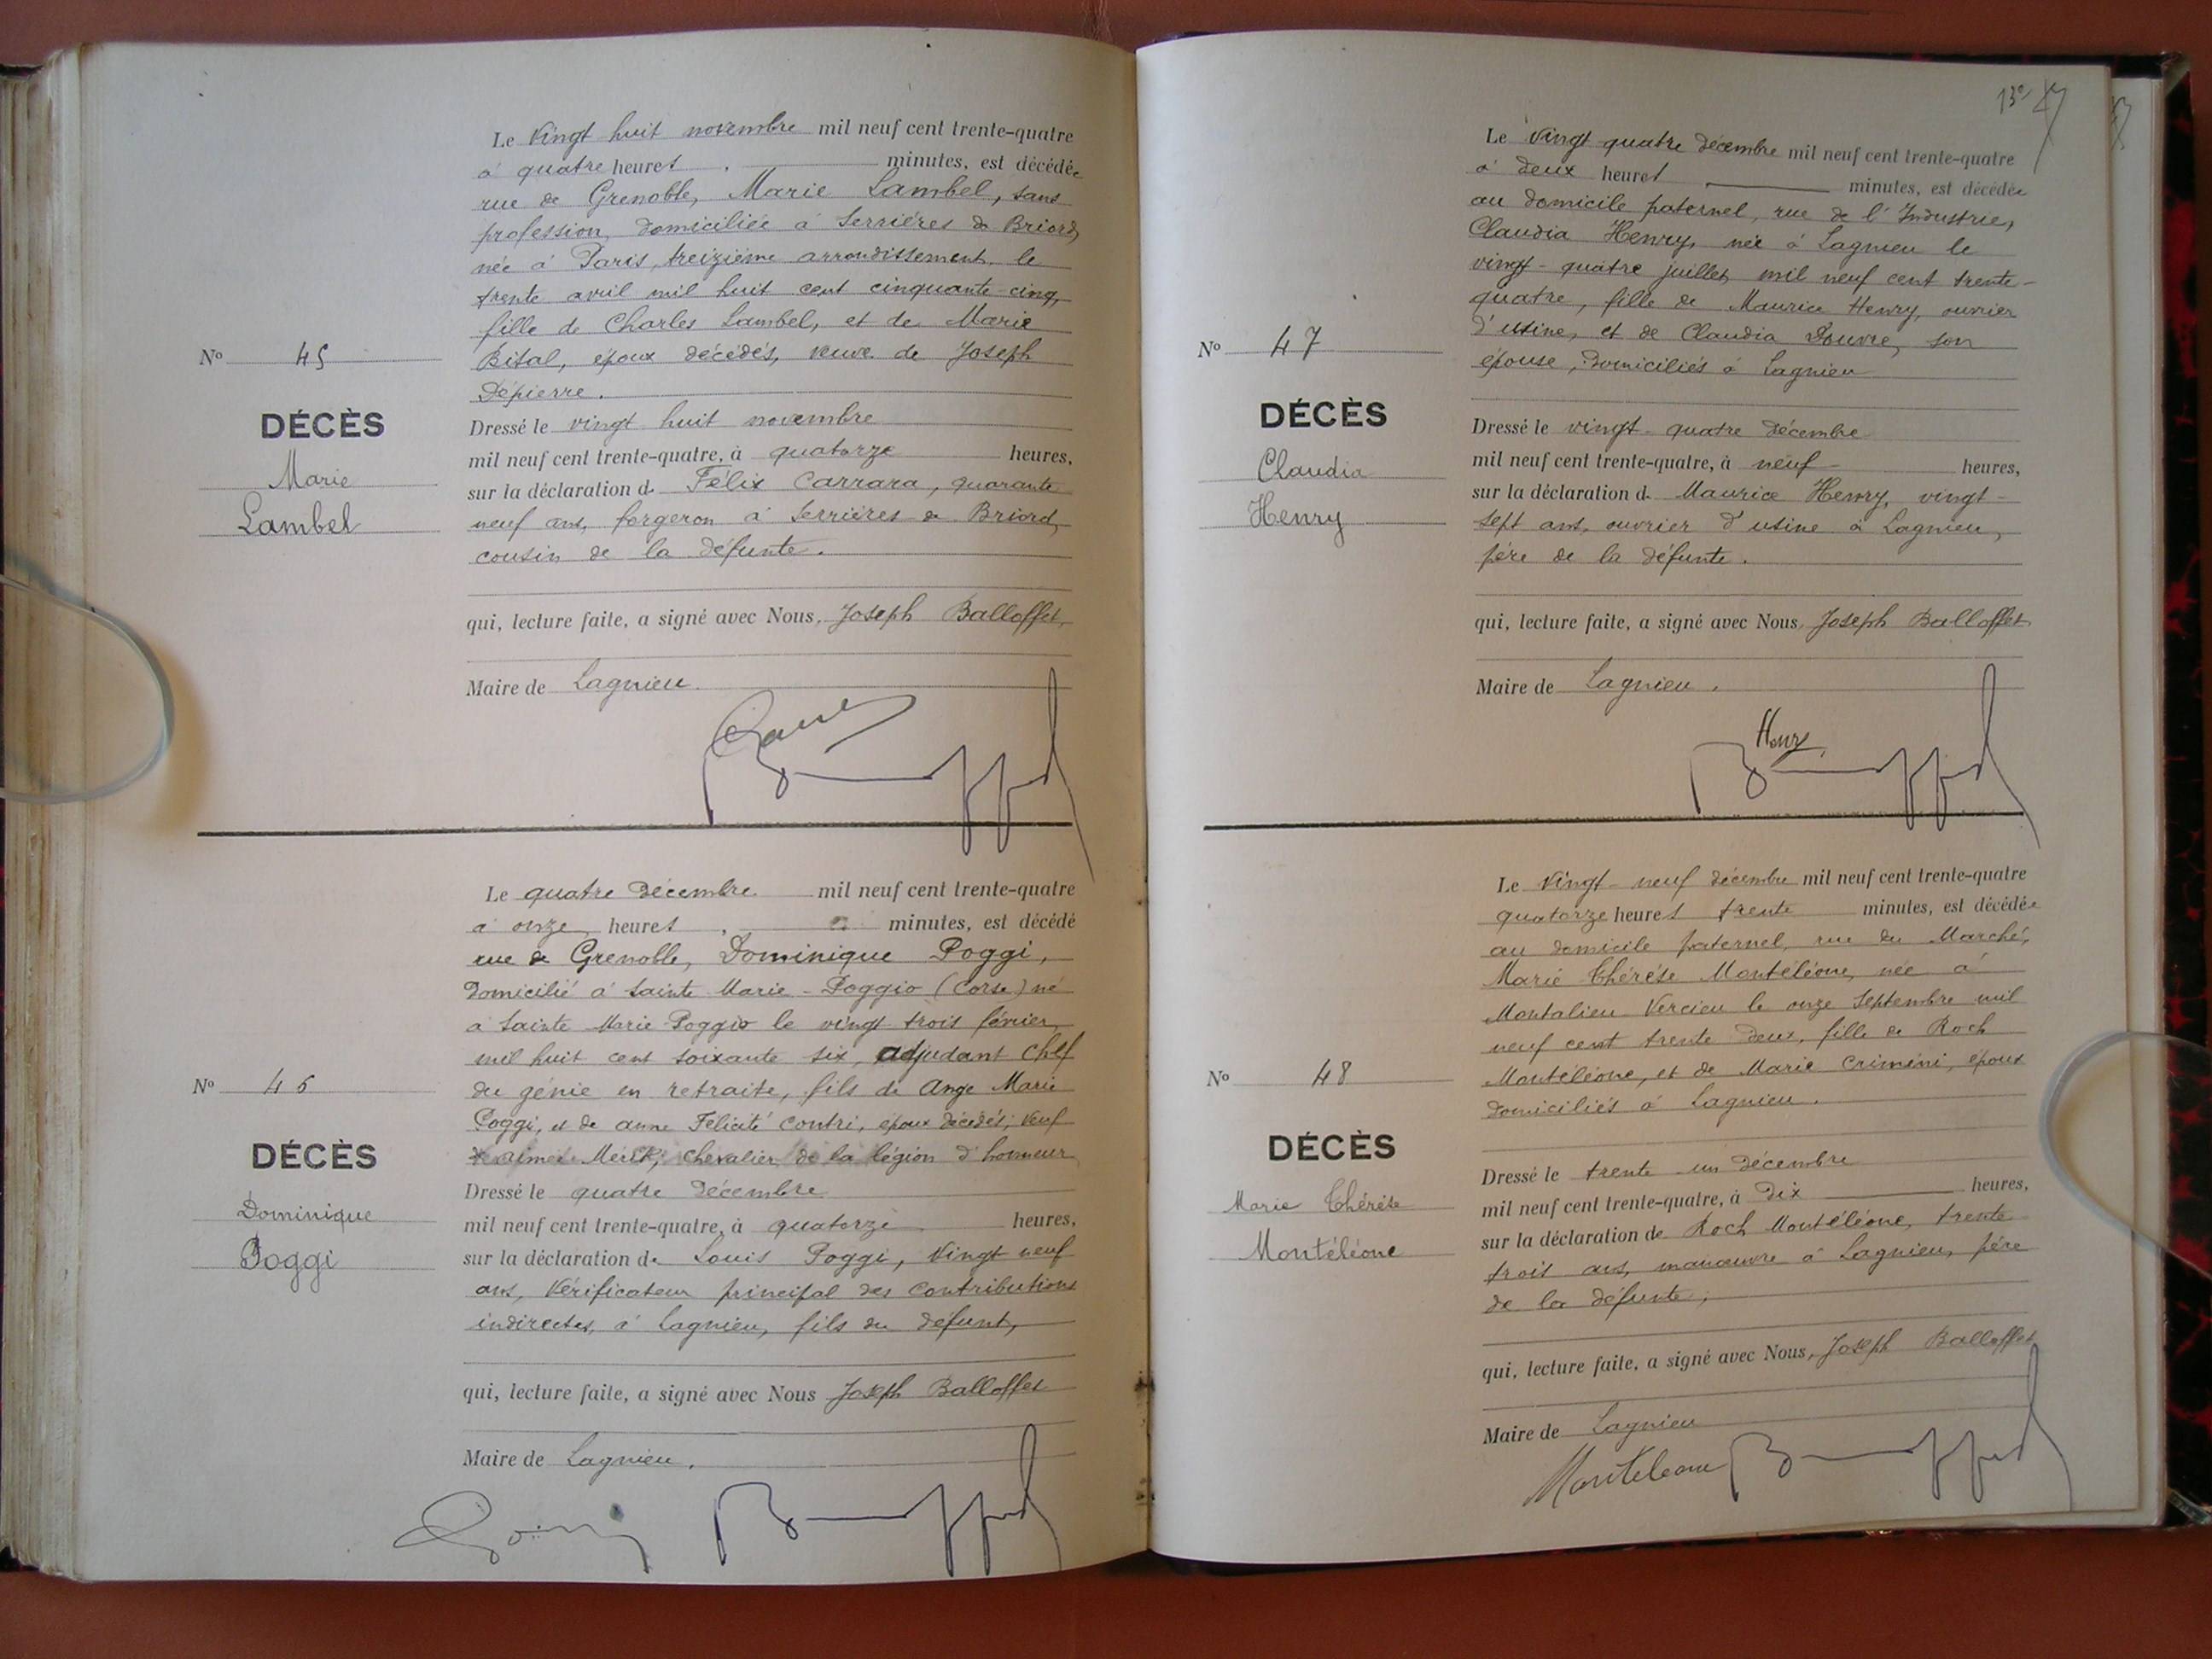 Le Vingt huit novembre mil neuf cent trente-quatre
à quatre heures . minutes, est décédée
rue de Grenoble, Marie Lambel, sans
profession, domiciliée à Serrières de Briord,
née à Paris, treizième arrondissement, le
trente avril mil huit cent cinquante-cinq,
fille de Charles Lambel, et de Marie
Bital, époux décédés, veuve de Joseph
Dépierre.
N° 45
DÉCÈS
Marie
Lambel
Dressé le vingt huit novembre
mil neuf cent trente-quatre, à quatorze heures,
sur la déclaration de Félix Carrara, quarante
neuf ans, forgeron à Serrières de Briord,
cousin de la défunte.
qui, lecture faite, a signé avec Nous, Joseph Balloffet,
Maire de Lagnieu.
Le quatre décembre mil neuf cent trente-quatre
à onze heures , minutes, est décédé
rue de Grenoble, Dominique Poggi,
domicilié à Sainte Marie-Poggio (Corse) né
à Sainte Marie-Poggio le vingt trois février
mil huit cent soixante six, adjudant chef
du génie en retraite, fils de Ange Marie
Poggi, et de Anne Félicité Contri, époux décédés; veuf
chevalier de la légion d'honneur
N° 46
DÉCÈS
Dominique
Poggi
Dressé le quatre décembre
mil neuf cent trente-quatre, à quatorze heures,
sur la déclaration de Louis Poggi, Vingt neuf
ans, Vérificateur principal des Contributions
indirectes, à Lagnieu, fils du défunt,
qui, lecture faite, a signé avec Nous Joseph Balloffet
Maire de Lagnieu.
Le Vingt-quatre décembre mil neuf cent trente-quatre
à deux heures minutes, est décédée
au domicile paternel, rue de l'Industrie,
Claudia Henry, née à Lagnieu le
vingt-quatre juillet mil neuf cent trente-
quatre, fille de Maurice Henry, ouvrier
d'usine, et de Claudia Douvre, son
épouse, domiciliés à Lagnieu
N° 47
DÉCÈS
Claudia
Henry
Dressé le vingt-quatre décembre
mil neuf cent trente-quatre, à neuf heures,
sur la déclaration de Maurice Henry, vingt-
sept ans, ouvrier d'usine à Lagnieu,
père de la défunte.
qui, lecture faite, a signé avec Nous, Joseph Balloffet
Maire de Lagnieu.
Henry
Le Vingt-neuf décembre mil neuf cent trente-quatre
quatorze heures trente minutes, est décédée
au domicile paternel, rue du Marché,
Marie Thérèse Montéléone, née à
Montalieu Vercieu le onze Septembre mil
neuf cent trente deux, fille de Roch
Montéléone, et de Marie Criméni, époux
domiciliés à Lagnieu.
N° 48
DÉCÈS
Marie Thérèse
Montéléone
Dressé le trente-un décembre
mil neuf cent trente-quatre, à dix heures,
sur la déclaration de Roch Montéléone, trente
trois ans, manœuvre à Lagnieu, père
de la défunte,
qui, lecture faite, a signé avec Nous, Joseph Balloffet
Maire de Lagnieu
Monteleone